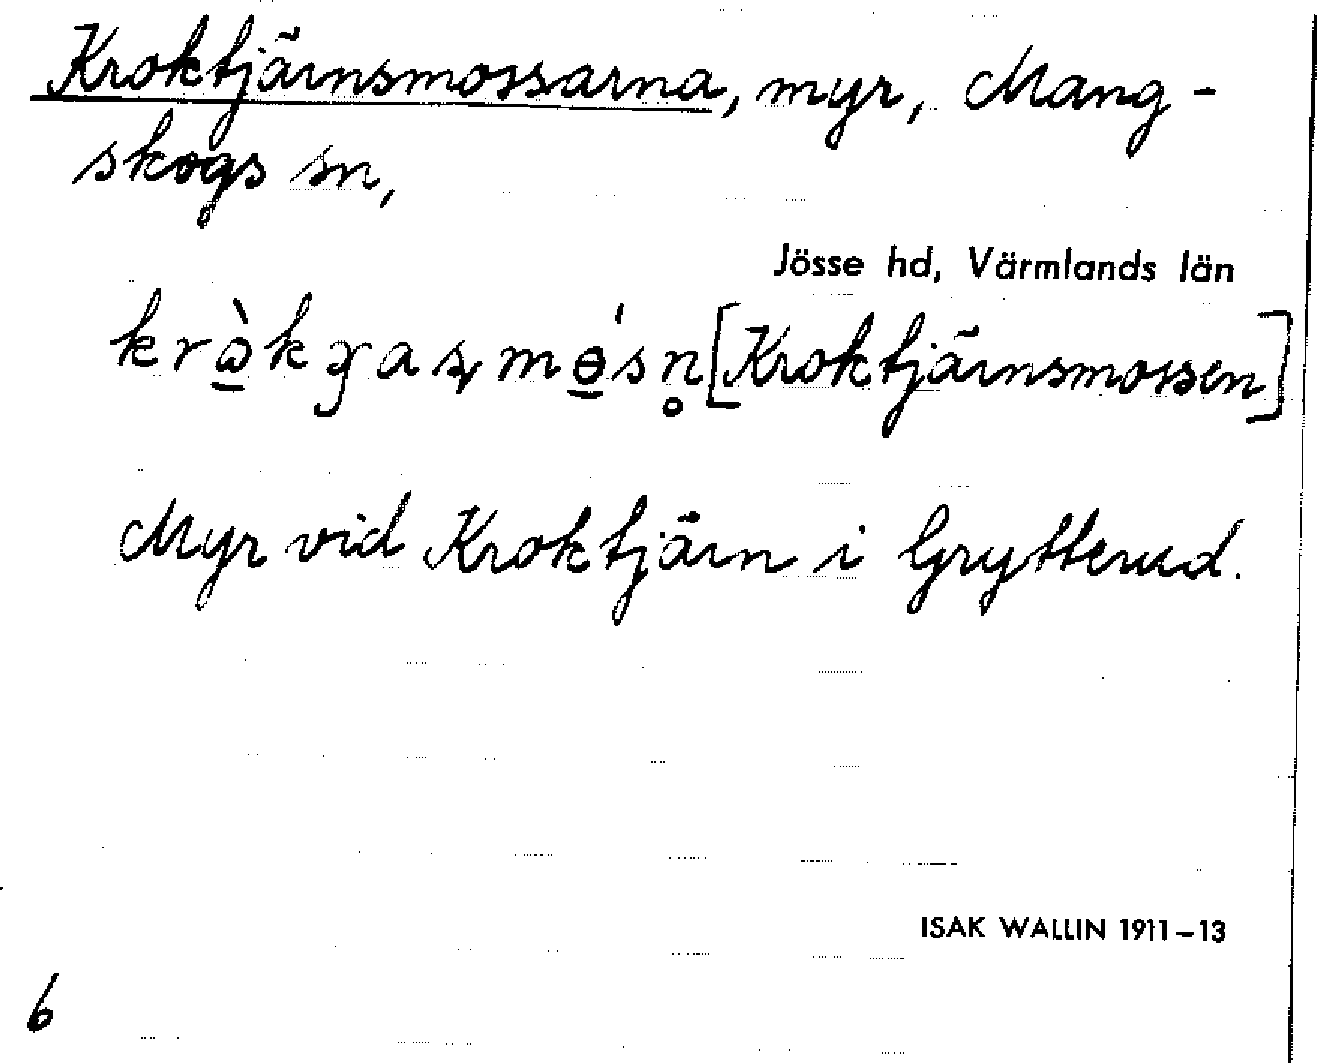 Kroktjärnsmossarna, myr, Mang-
skogs sn,
Jösse hd, Värmlands län
[Kroktjärnsmossen]
Myr vid Kroktjärn i Grytterud.
ISAK WALLIN 1911–13
6